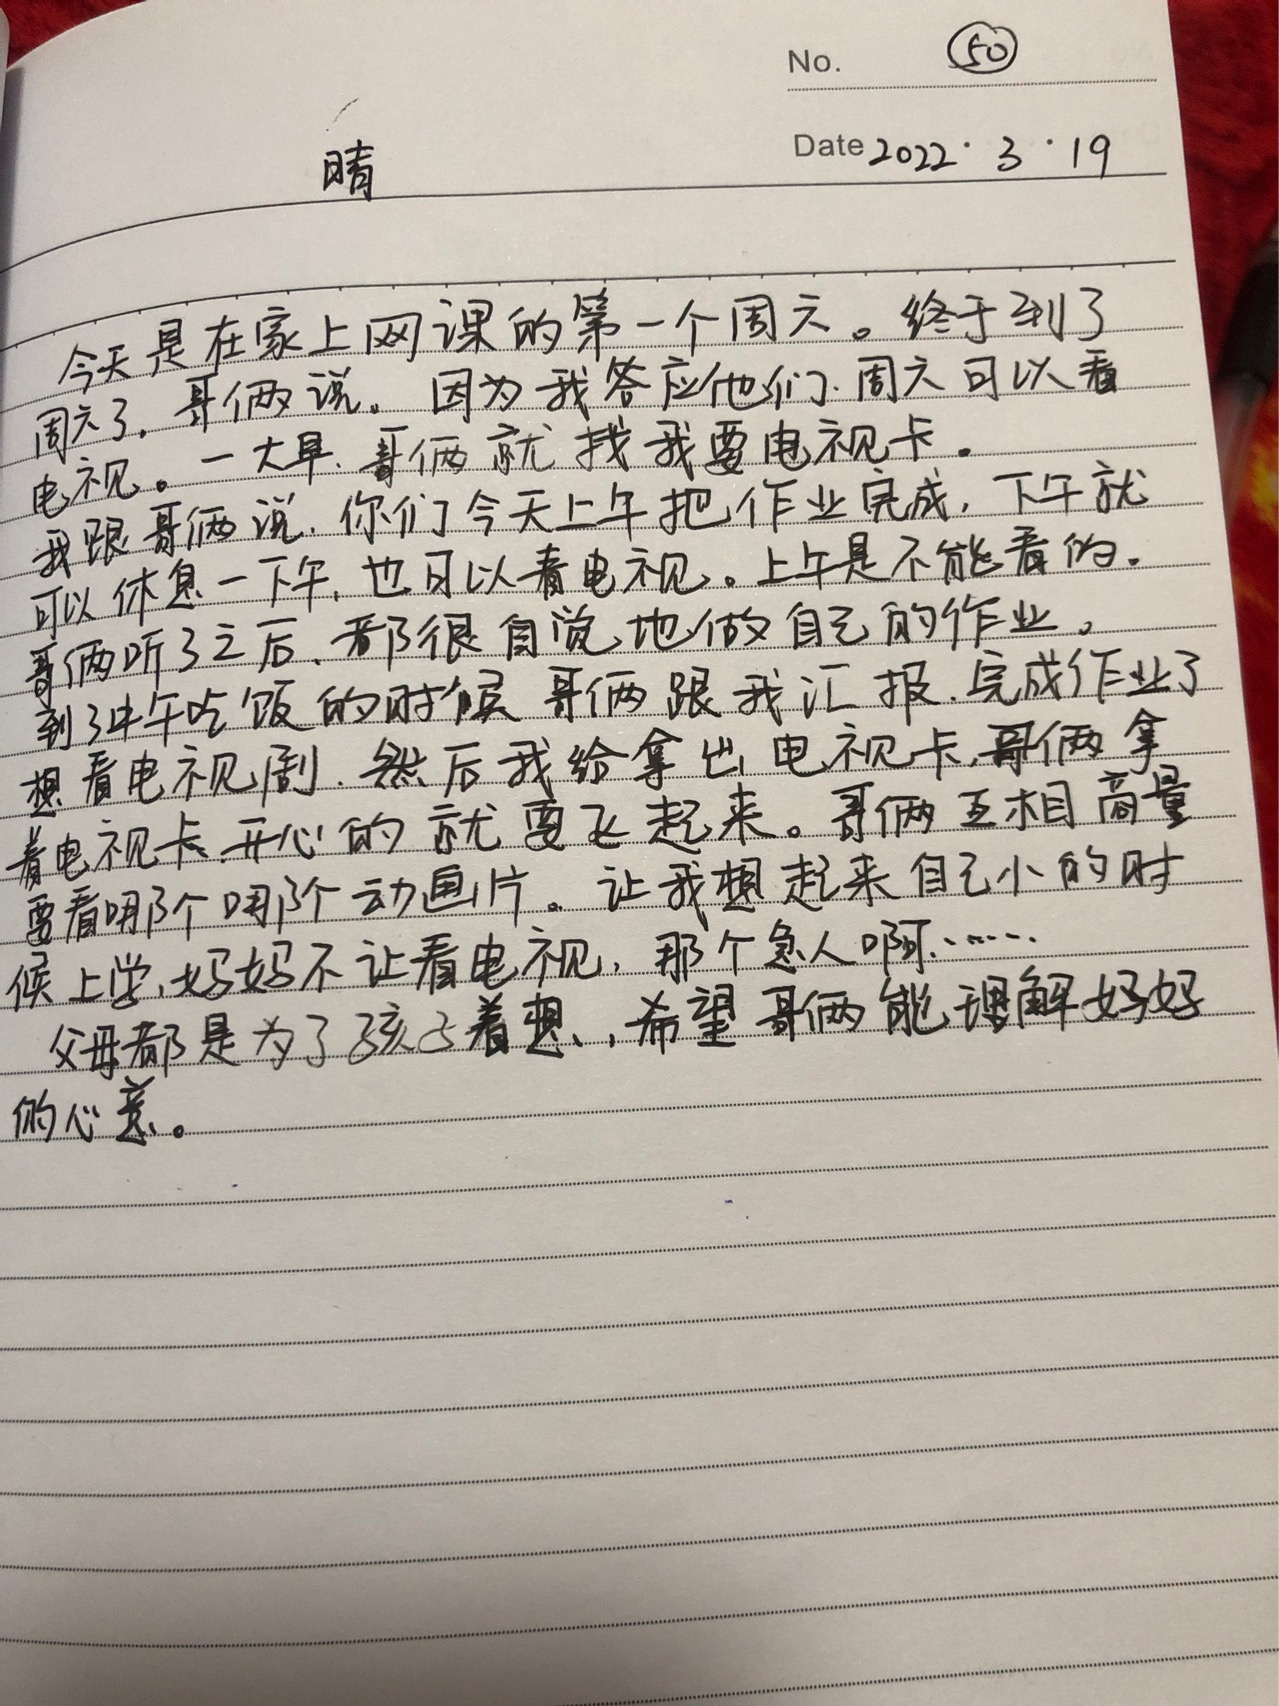 No. 50
Date 2022.3.19
晴
今天是在家上网课的第一个周六。终于到了
周六了，哥俩说。因为我答应他们，周六可以看
电视。一大早、哥俩就找我要电视卡。
我跟哥俩说，你们今天上午把作业完成，下午就
可以休息一下午，也可以看电视。上午是不能看的。
哥俩听了之后、都很自觉地做自己的作业。
到了中午吃饭的时候哥俩跟我汇报，完成作业了
想看电视剧、然后我给拿出电视卡，哥俩拿
着电视卡，开心的就要飞起来。哥俩互相商量
要看哪个哪个动画片。让我想起来自己小的时
候上学，妈妈不让看电视，那个急人啊……
父母都是为了孩子着想，希望哥俩能理解妈妈
的心意。